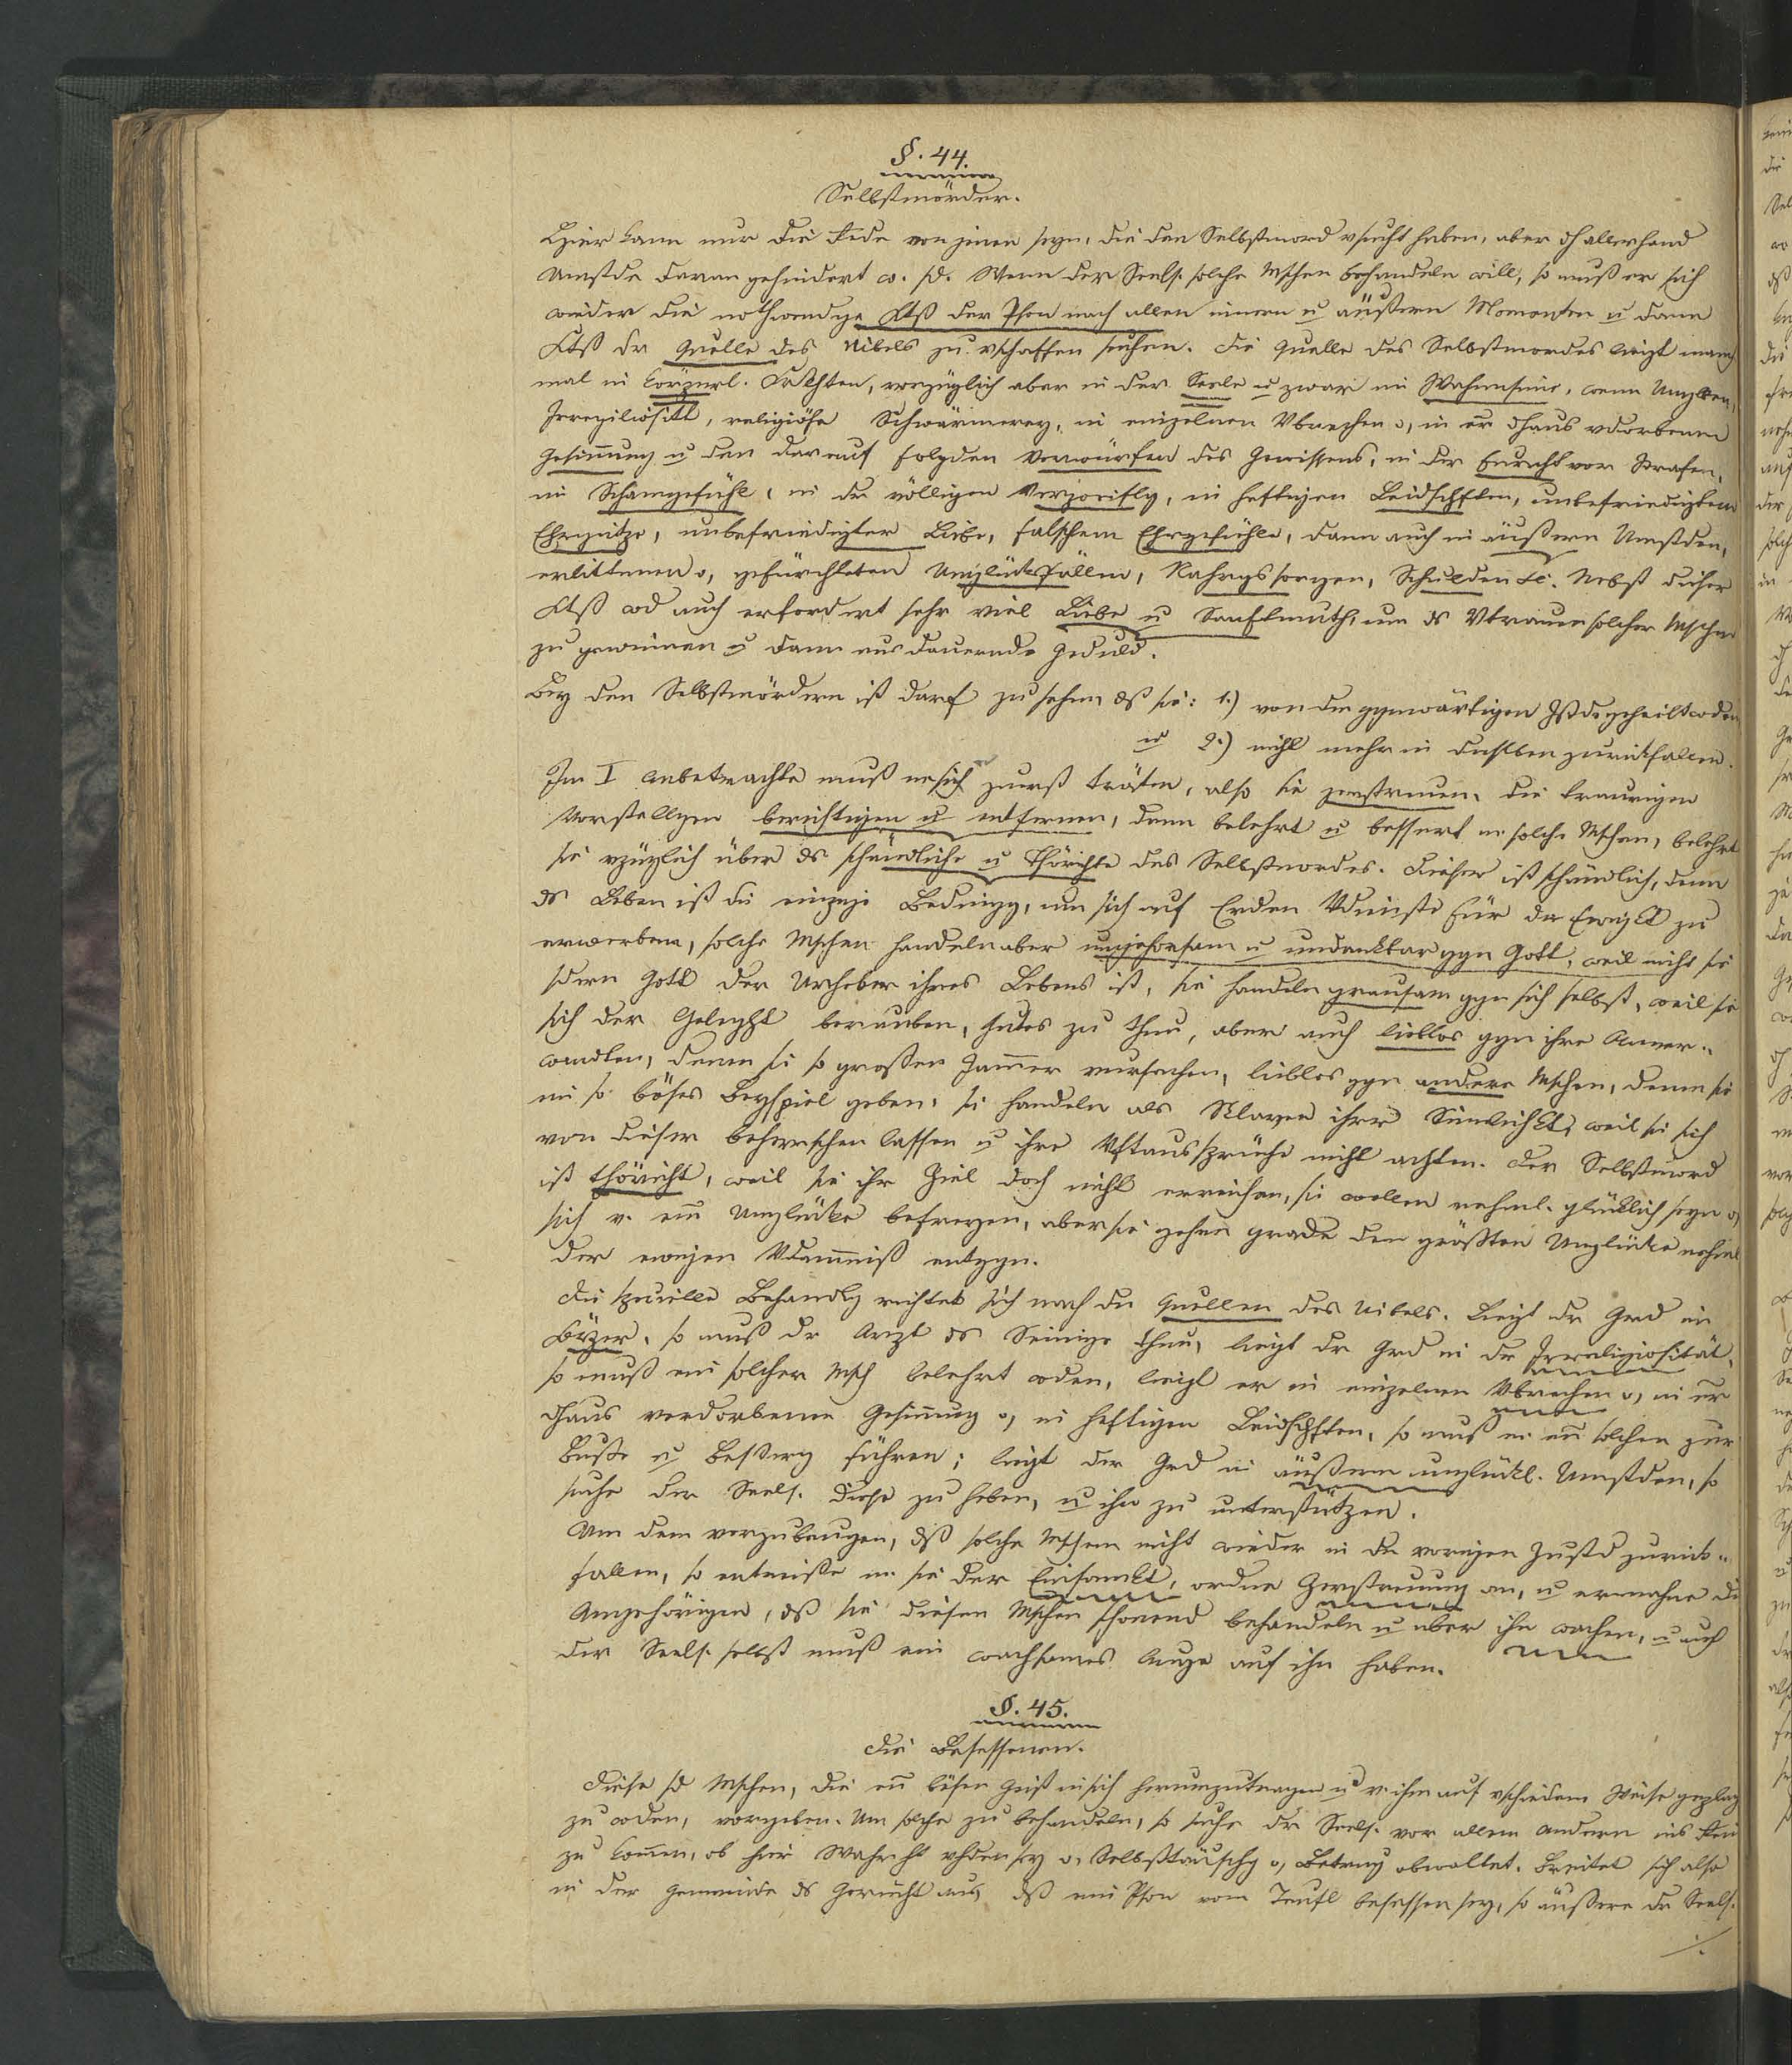 §. 44.
Selbstmörder.
Hier kann nur die Rede von jenen seyn, die den Selbstmord vsucht haben, aber dh allerhand
Umstde daran gehindert w. sd. Wenn der Seels. solche Mschen behandeln will, so muß er sich
wieder die nothwendge Ktß der Pson nach allen innern u äußern Momenten u dann
Ktß dr Quelle des Uibels zu vschaffen suchen. Die Quelle des Selbstmordes liegt manch
mal in körperl. , vorzüglich aber in der Seele u zwar im Wahnsinne,
Irreligiösitt, religiöse Schwärmerey, in einzelnen Vbrechen o, in er dhaus vdorbenen
Gesinnung u den darauf folgden Vorwürfen des Gewissens, in der Furcht vor Strafen,
im Schamgefühle, in der völligen Verzweiflg, in heftigen Leidschften, unbefriedigtem
Ehrgeitze, unbefriedigter Liebe, falschem Ehrgefühle, dann auch in äußern Umstden,
erlittenen o, gefürchteten Unglücksfällen, Nahrgssorgen, Schulden etc. Nebst dieser
Ktß wd auch erfordert sehr viel Liebe u Sanftmuth, um ds Vtrauen solcher Mschen
zu gewinnen u dann ausdauernde Geduld.
Bey den Selbstmördern ist darf zu sehen, dß sie: 1.) von dem ggnwärtigen Zstde geheilt wden
u 2.) nicht mehr in denselben zurückfallen.
Im I Anbetrachte muß m sich zuerst trösten, also sie zerstreuen, die traurigen
Vorstellgen berichtigen u entfernen, dann belehrt u bessert m solche Mschen, belehrt
sie vzüglich über ds schändliche u thörichte des Selbstmordes. Dieser ist schändlich, denn
ds Leben ist die einzige Bedingg, um sich auf Erden Vdienste für die Ewigkt zu
erwerben, solche Mschen handeln aber ungehorsam u undankbar ggn Gott, weil nicht sie
sdern Gott der Urheber ihres Lebens ist, sie handeln grausam ggn sich selbst, weil sie
sich der Geleght berauben, Gutes zu thun, aber auch lieblos ggn ihre Anver-
wandten, denen sie so großen Jammer vursachen, lieblos ggn andere Mschen, denen sie
ein so böses Beyspiel geben, sie handeln als Sklaven ihrer Sinnlichkt, weil sie sich
von dieser beherrschen lassen u ihre Vftaussprüche nicht achten. Der Selbstmord
ist thöricht, weil sie ihr Ziel doch nicht erreichen, sie wollen nehml. glücklich seyn o,
sich v. em Unglücke befreyen, aber sie gehen grade dem größten Unglücke nehml
der ewigen Vdammniß entggn.
Die spezielle Behandlg richtet sich nach den Quellen des Uibels. Liegt dr Grd im
Körper, so muß dr Arzt ds Seinige thun, liegt dr Grd in der Irreligiosität,
so muß ein solcher Msch belehrt wden, liegt er in einzelnen Vbrechen o, in er
dhaus verdorbenen Gesinnung o, in heftigen Leidschften, so muß m en solchen zur
Buße u Besserg führen; liegt der Grd in äußern unglückl. Umstden, so
suche der Seels. diese zu heben, u ihn zu unterstützen.
Um dem vorzubeugen, dß solche Mschen nicht wieder in den vorigen Zustd zurück-
fallen, so entreiße m sie der Einsamkt, ordne Zerstreuung an, u ermahne die
Angehörigen, dß sie diesen Mschen schonend behandeln u über ihn wachen, u auch
der Seels. selbst muß ein wachsames Auge auf ihn haben.
§. 45.
Die Besessenen.
Diese sd Mschen, die en bösen Geist in sich herumzutragen u v ihm auf vschiedene Weise geplagt
zu wden, vorgeben. Um solche zu behandeln, so suche dr Seels. vor allem andern ins Rein
zu kommen, ob hier Wahrht vhden sey o, Selbsttäuschg o, Betrug obwaltet. Breitet sich also
in der Gemeinde ds Gerücht aus, dß eine Pson vom Teufl besessen sey, so äußere dr Seels.
./.